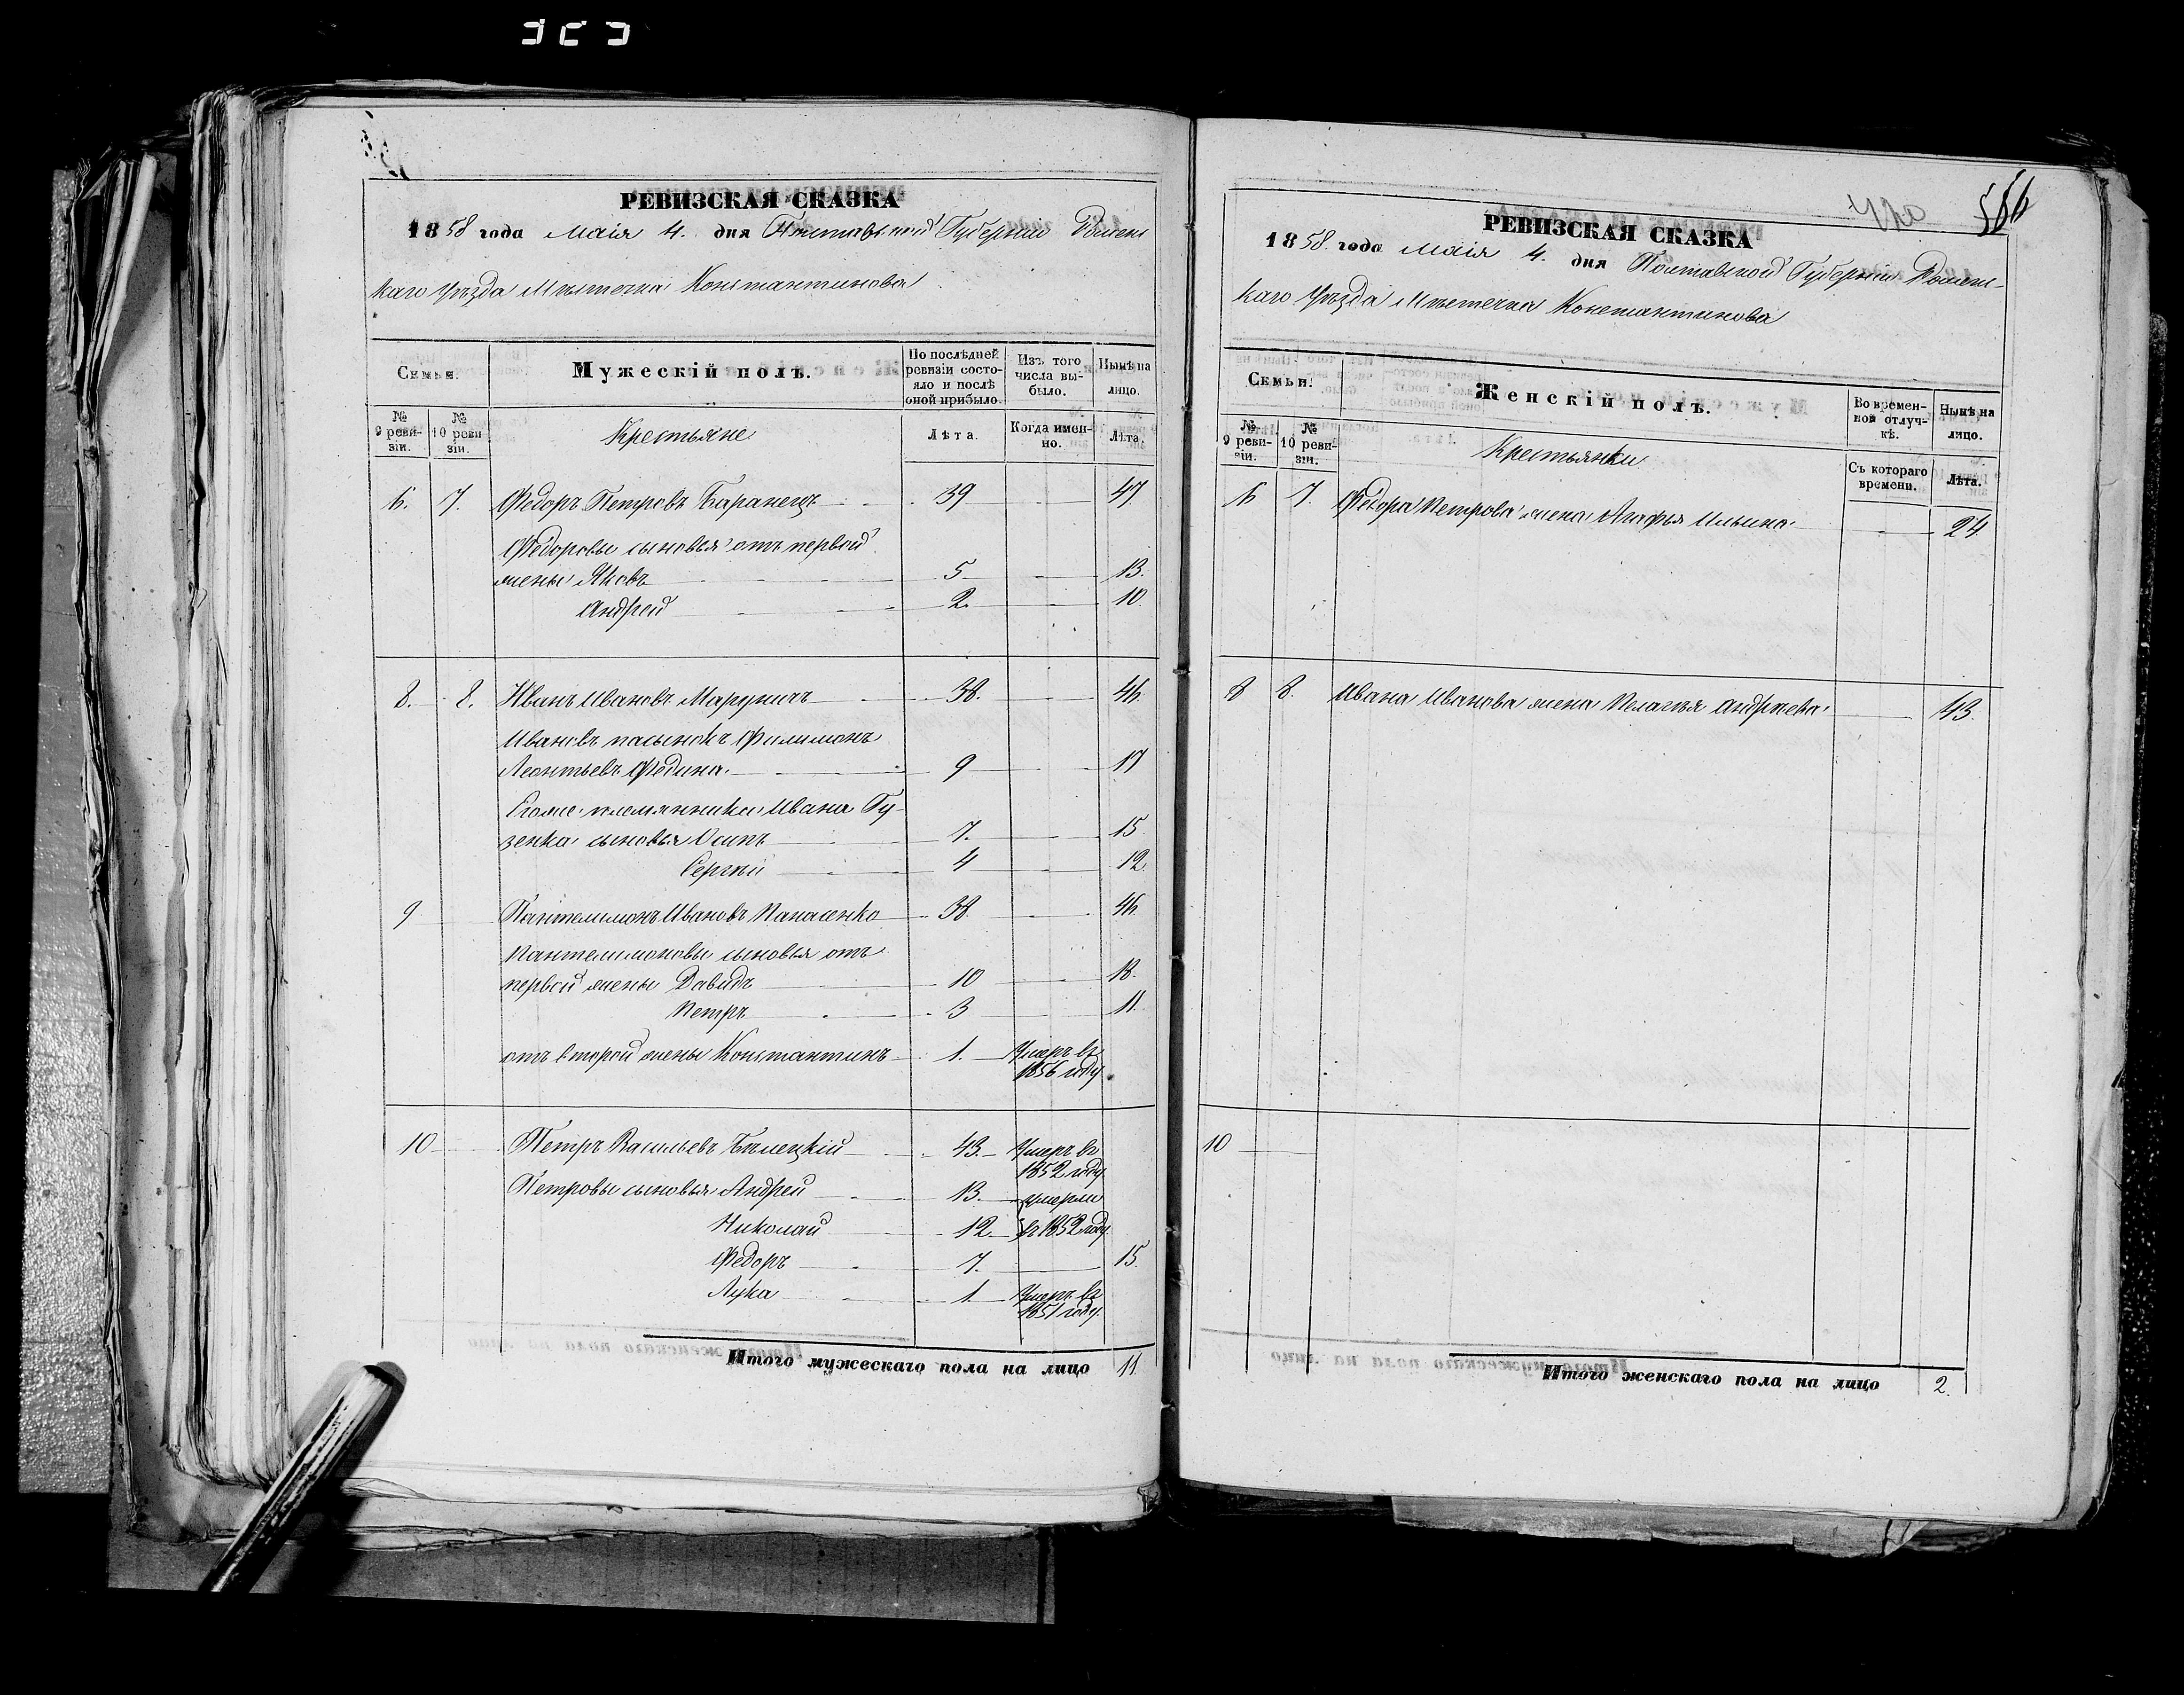 РЕВИЗСКАЯ СКАЗКА
1858 года Маія 4. дня Полтавской Губерніи Роменс
каго Уѣзда Мѣстечка Константинова
Семьи. Мужескій полъ. По послѣдней ревизіи состояло и послѣ оной прибыло. Изъ того числа выбыло. Нынѣ на лицо.
№ 9 ревизіи. № 10 ревизіи. Крестьяне Лѣта. Когда именно. Лѣта.
6. 7. Федоръ Петровъ Баранецъ 39 47.
Федоровы сыновья отъ первой
жены Яковъ 5 13.
Андрей 2. 10.
8. 8. Иванъ Ивановъ Маруничъ 38. 46.
Ивановъ пасынокъ Филимонъ
Леонтьевъ Федина. 9 17
Егоже племянника Ивана Гу-
зенка сыновья Осипъ 7. 15
Сергѣй 4 12.
9 Пантелимонъ Ивановъ Панасенко 38. 46.
Пантелимоновы сыновья отъ
первой жены Давидъ 10 18.
Петръ 3 11.
отъ второй жены Константинъ 1. Умеръ въ
1856 году.
10 Петръ Васильевъ Бѣлецкій 43. Умеръ въ
1852 году
Петровы сыновья Андрей 13. умерли
Николай 12. въ 1852 году.
Федоръ 7. 15.
Лука 1. Умеръ въ
1851 году.
Итого мужескаго пола на лицо 11.
566
РЕВИЗСКАЯ СКАЗКА
1858. года Маія 4. дня Полтавской Губерніи Роменс-
каго Уѣзда Мѣстечка Константинова
Семьи. Женскій полъ. Во временной отлучкѣ. Нынѣ на лицо.
№ 9 ревизіи. № 10 ревизіи. Крестьянки Съ котораго времени. Лѣта.
6 7. Федора Петрова жена Агафья Ильина 24.
8 8. Ивана Иванова жена Пелагѣя Андреева 43.
10
Итого женскаго пола на лицо 2.